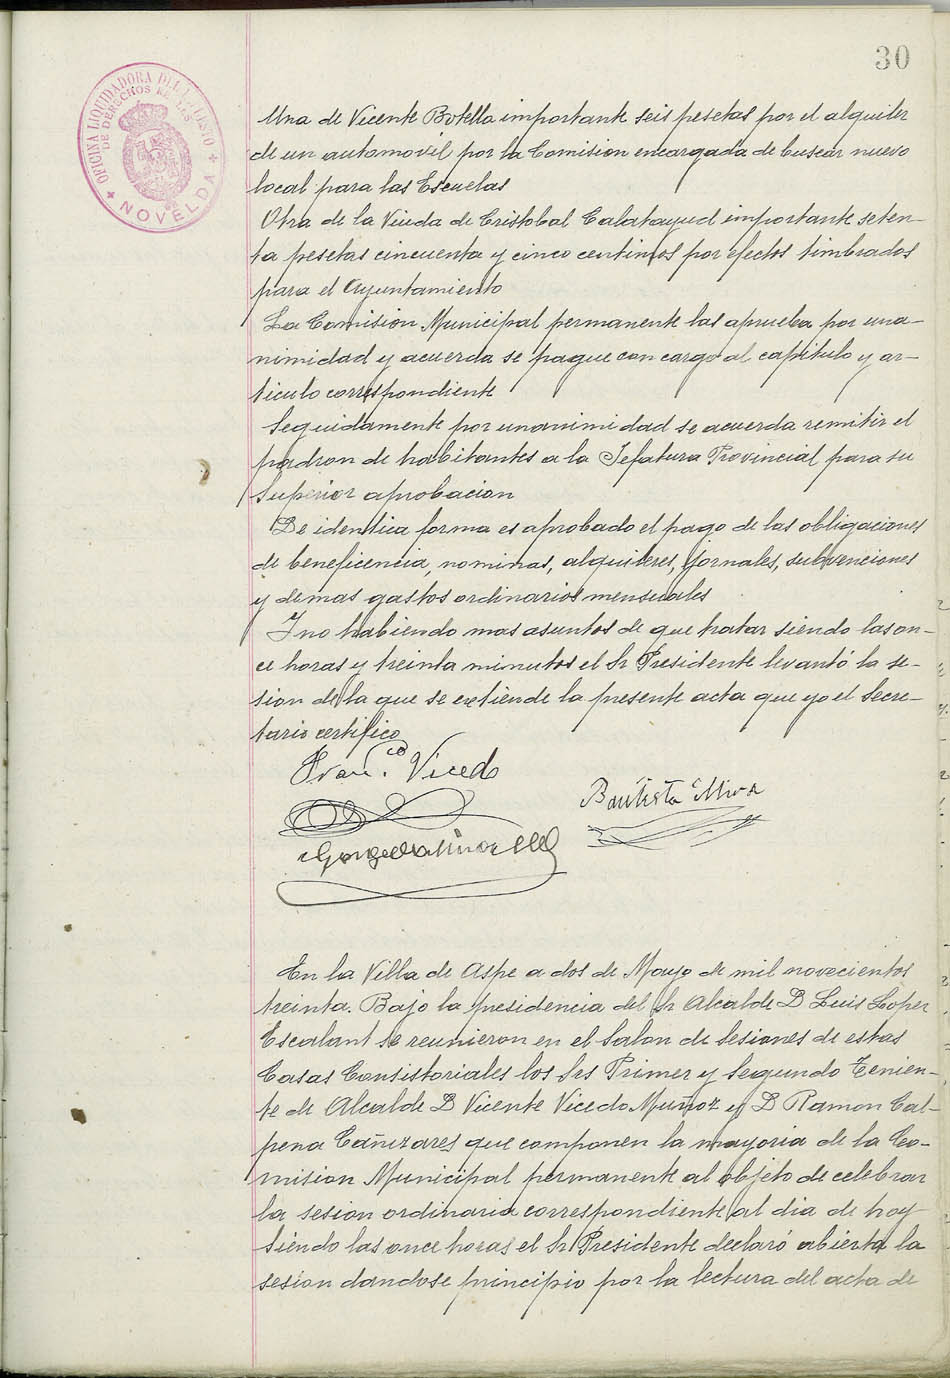 30
OFICINA LIQUIDADORA DEL IMPUESTO
DE DERECHOS REALES
NOVELDA
Una de Vicente Botella importante seis pesetas por el alquiler
de un automovil por la Comision encargada de buscar nuevo
local para las Escuelas
Otra de la Viuda de Cristobal Calatayud importante seten-
ta pesetas cincuenta y cinco centimos por efectos timbrados
para el Ayuntamiento
La Comision Municipal permanente las aprueba por una-
nimidad y acuerda se pague con cargo al capitulo y ar-
ticulo correspondiente
Seguidamente por unanimidad se acuerda remitir el
padron de habitantes a la Jefatura Provincial para su
Superior aprobacion
De identica forma es aprobado el pago de las obligaciones
de beneficencia, nominas, alquileres, jornales, subvenciones
y demas gastos ordinarios mensuales
Y no habiendo mas asuntos de que tratar siendo las on-
ce horas y treinta minutos el Sr Presidente levantó la se-
sion de la que se extiende la presente acta que yo el Secre-
tario certifico
Fran.co Vicedo
Bautista Mira
En la Villa de Aspe a dos de Mayo de mil novecientos
treinta. Bajo la presidencia del Sr Alcalde D Luis Lopez
Escalant se reunieron en el Salon de Sesiones de estas
Casas Consistoriales los Srs Primer y Segundo Tenien-
te de Alcalde D Vicente Vicedo Muñoz y D Ramon Cal-
pena Cañizares que componen la mayoria de la Co-
mision Municipal permanente al objeto de celebrar
la sesion ordinaria correspondiente al dia de hoy
Siendo las once horas el Sr Presidente declaró abierta la
sesion dandose principio por la lectura del acta de